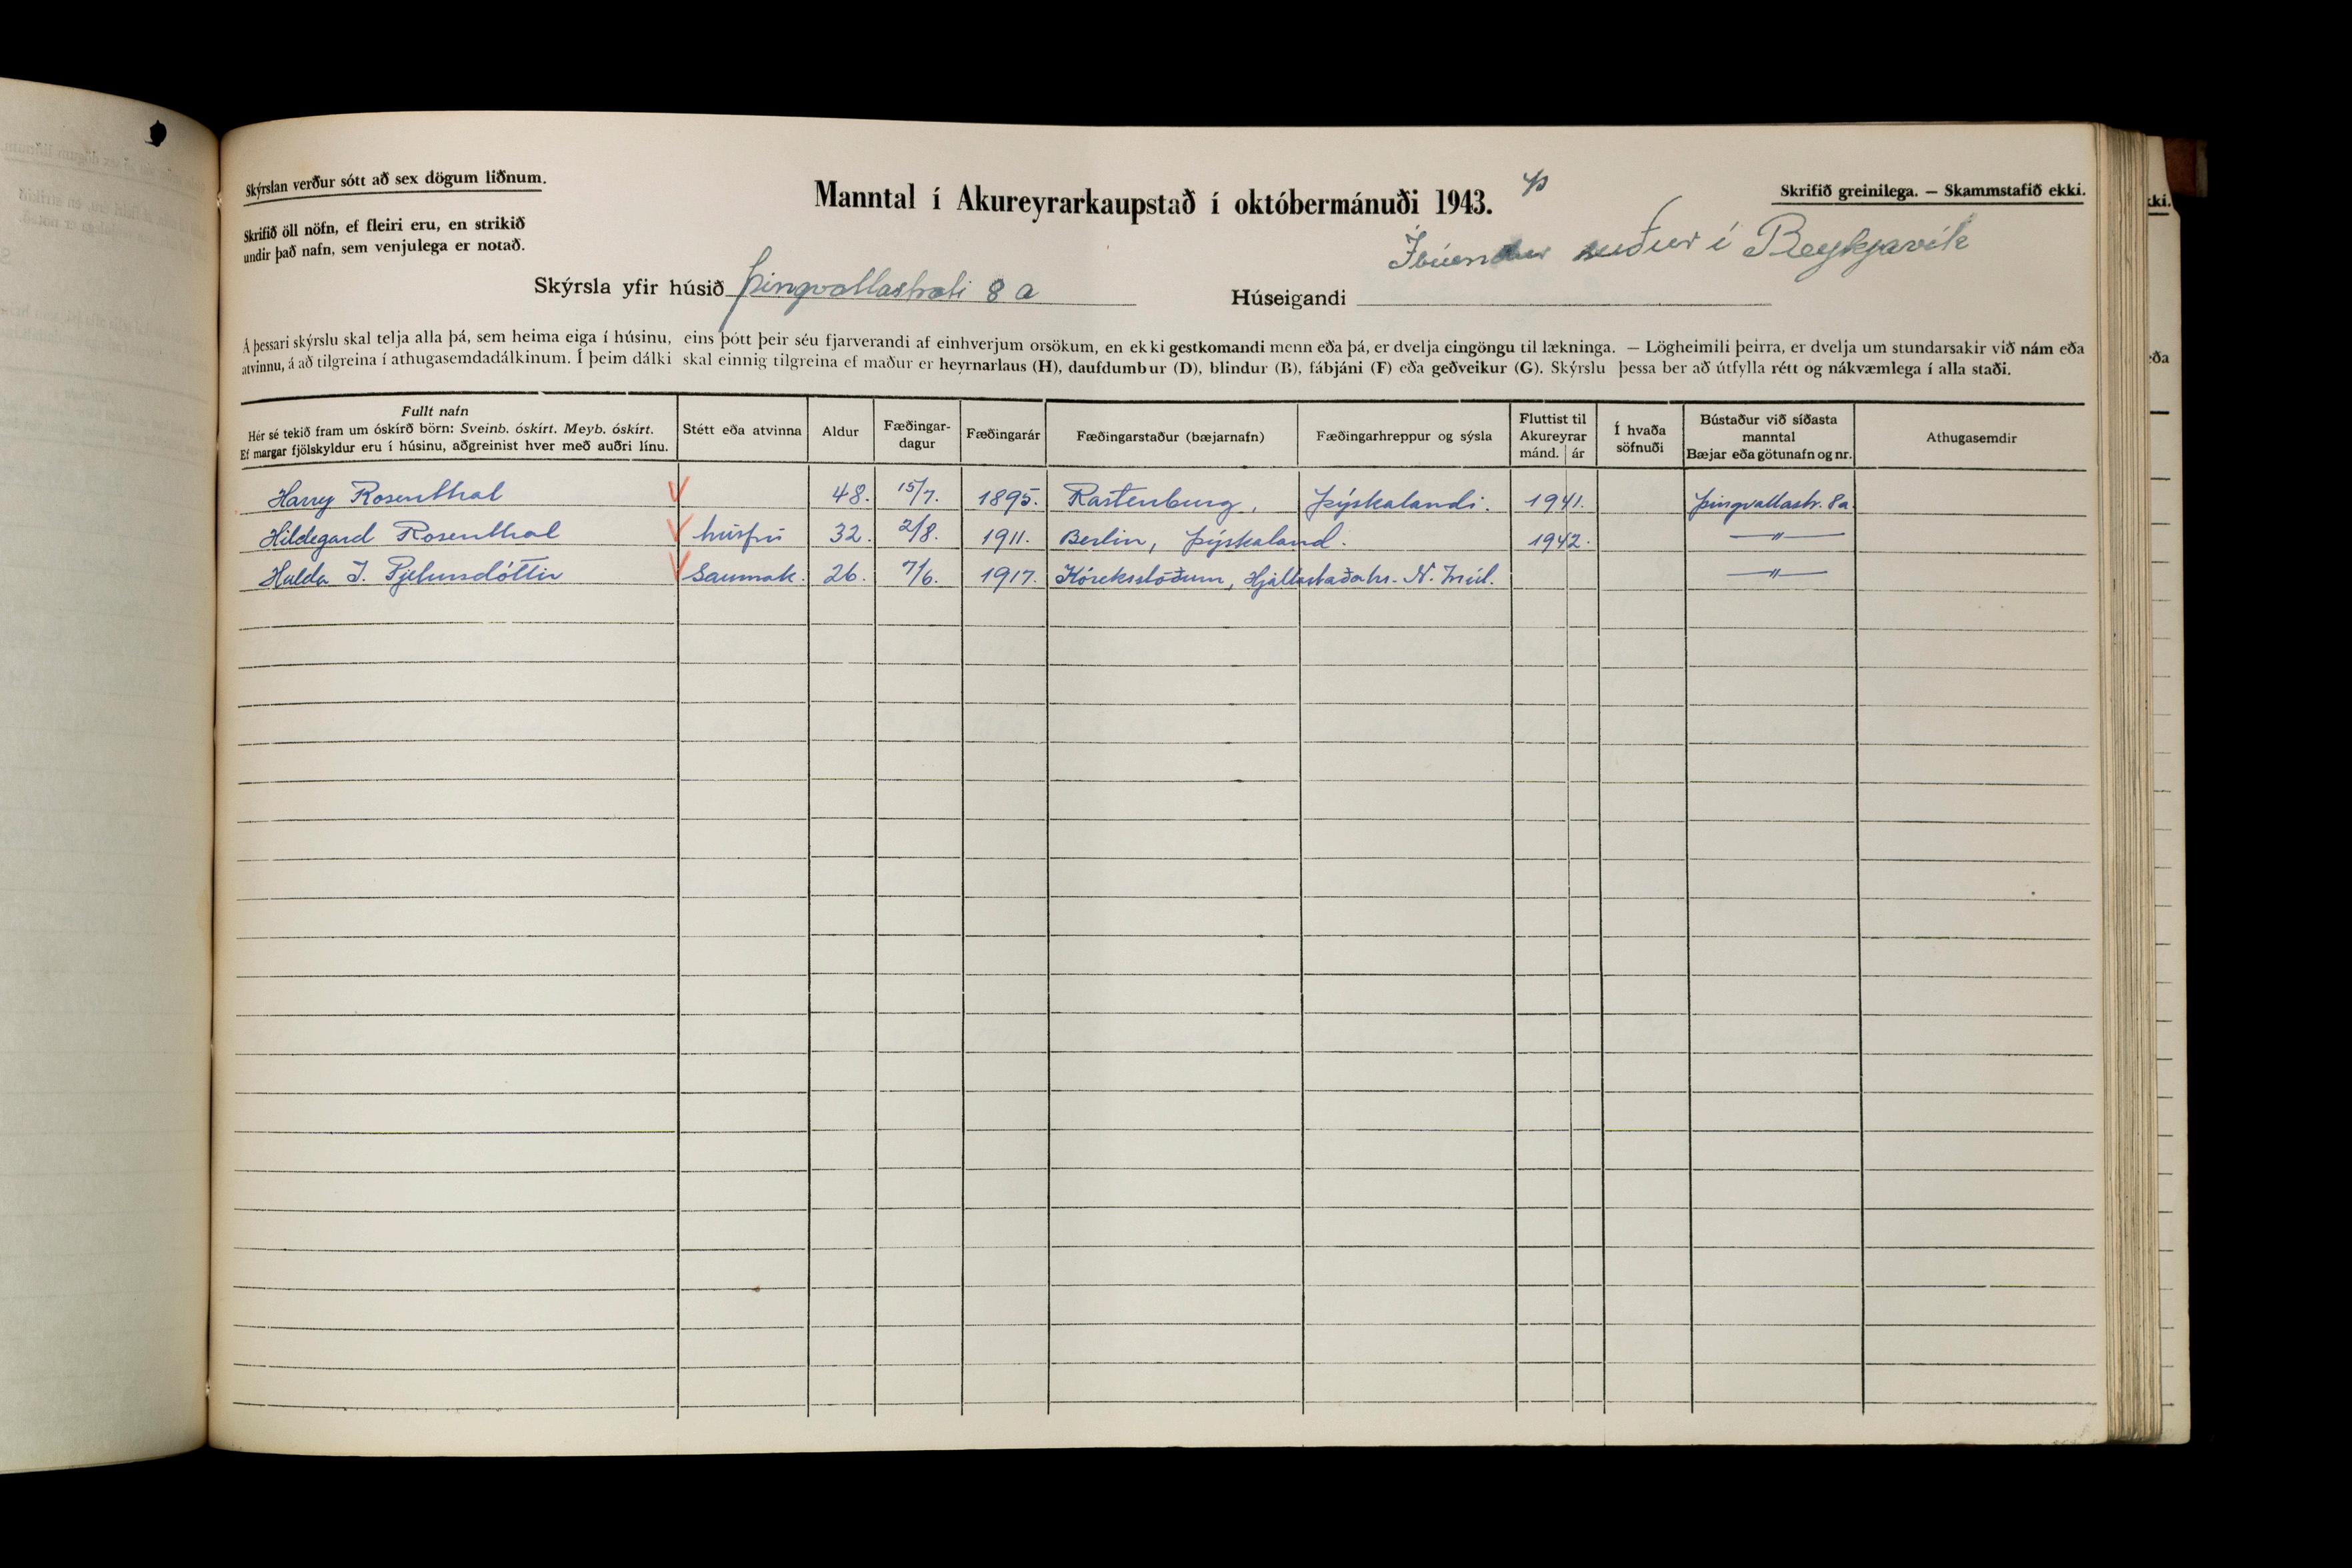 Skýrslan verður sótt að sex dögum liðnum.
Skrifið öll nöfn, ef fleiri eru, en strikið
undir það nafn, sem venjulega er notað.
Manntal í Akureyrarkaupstað í októbermánuði 1943.
Skrifið greinilega. — Skammstafið ekki.
Íbúendur suður í Reykjavík
Skýrsla yfir húsið Þingvallastræti 8 a Húseigandi
Á þessari skýrslu skal telja alla þá, sem heima eiga í húsinu, eins þótt þeir séu fjarverandi af einhverjum orsökum, en ekki gestkomandi menn eða þá, er dvelja eingöngu til lækninga. — Lögheimili þeirra, er dvelja um stundarsakir við nám eða
atvinnu, á að tilgreina í athugasemdadálkinum. Í þeim dálki skal einnig tilgreina ef maður er heyrnarlaus (H), daufdumbur (D), blindur (B), fábjáni (F) eða geðveikur (G). Skýrslu þessa ber að útfylla rétt og nákvæmlega í alla staði.
Fullt nafn
Hér sé tekið fram um óskírð börn: Sveinb. óskírt. Meyb. óskírt.
Ef margar fjölskyldur eru í húsinu, aðgreinist hver með auðri línu.
Stétt eða atvinna
Aldur
Fæðingar-
dagur
Fæðingarár
Fæðingarstaður (bæjarnafn)
Fæðingarhreppur og sýsla
Fluttist til
Akureyrar
mánd. ár
Í hvaða
söfnuði
Bústaður við síðasta
manntal
Bæjar eða götunafn og nr.
Athugasemdir
Harry Rosenthal 48. 15/7. 1895. Rastenburg, Þýskalandi. 1941. Þingvallastr. 8a
Hildegard Rosenthal húsfrú 32. 2/8. 1911. Berlin, Þýskaland. 1942. —"—
Hulda J. saumak. 26. 7/6. 1917. Kóreksstöðum, Hjaltastaðahr. N. Múl. —"—